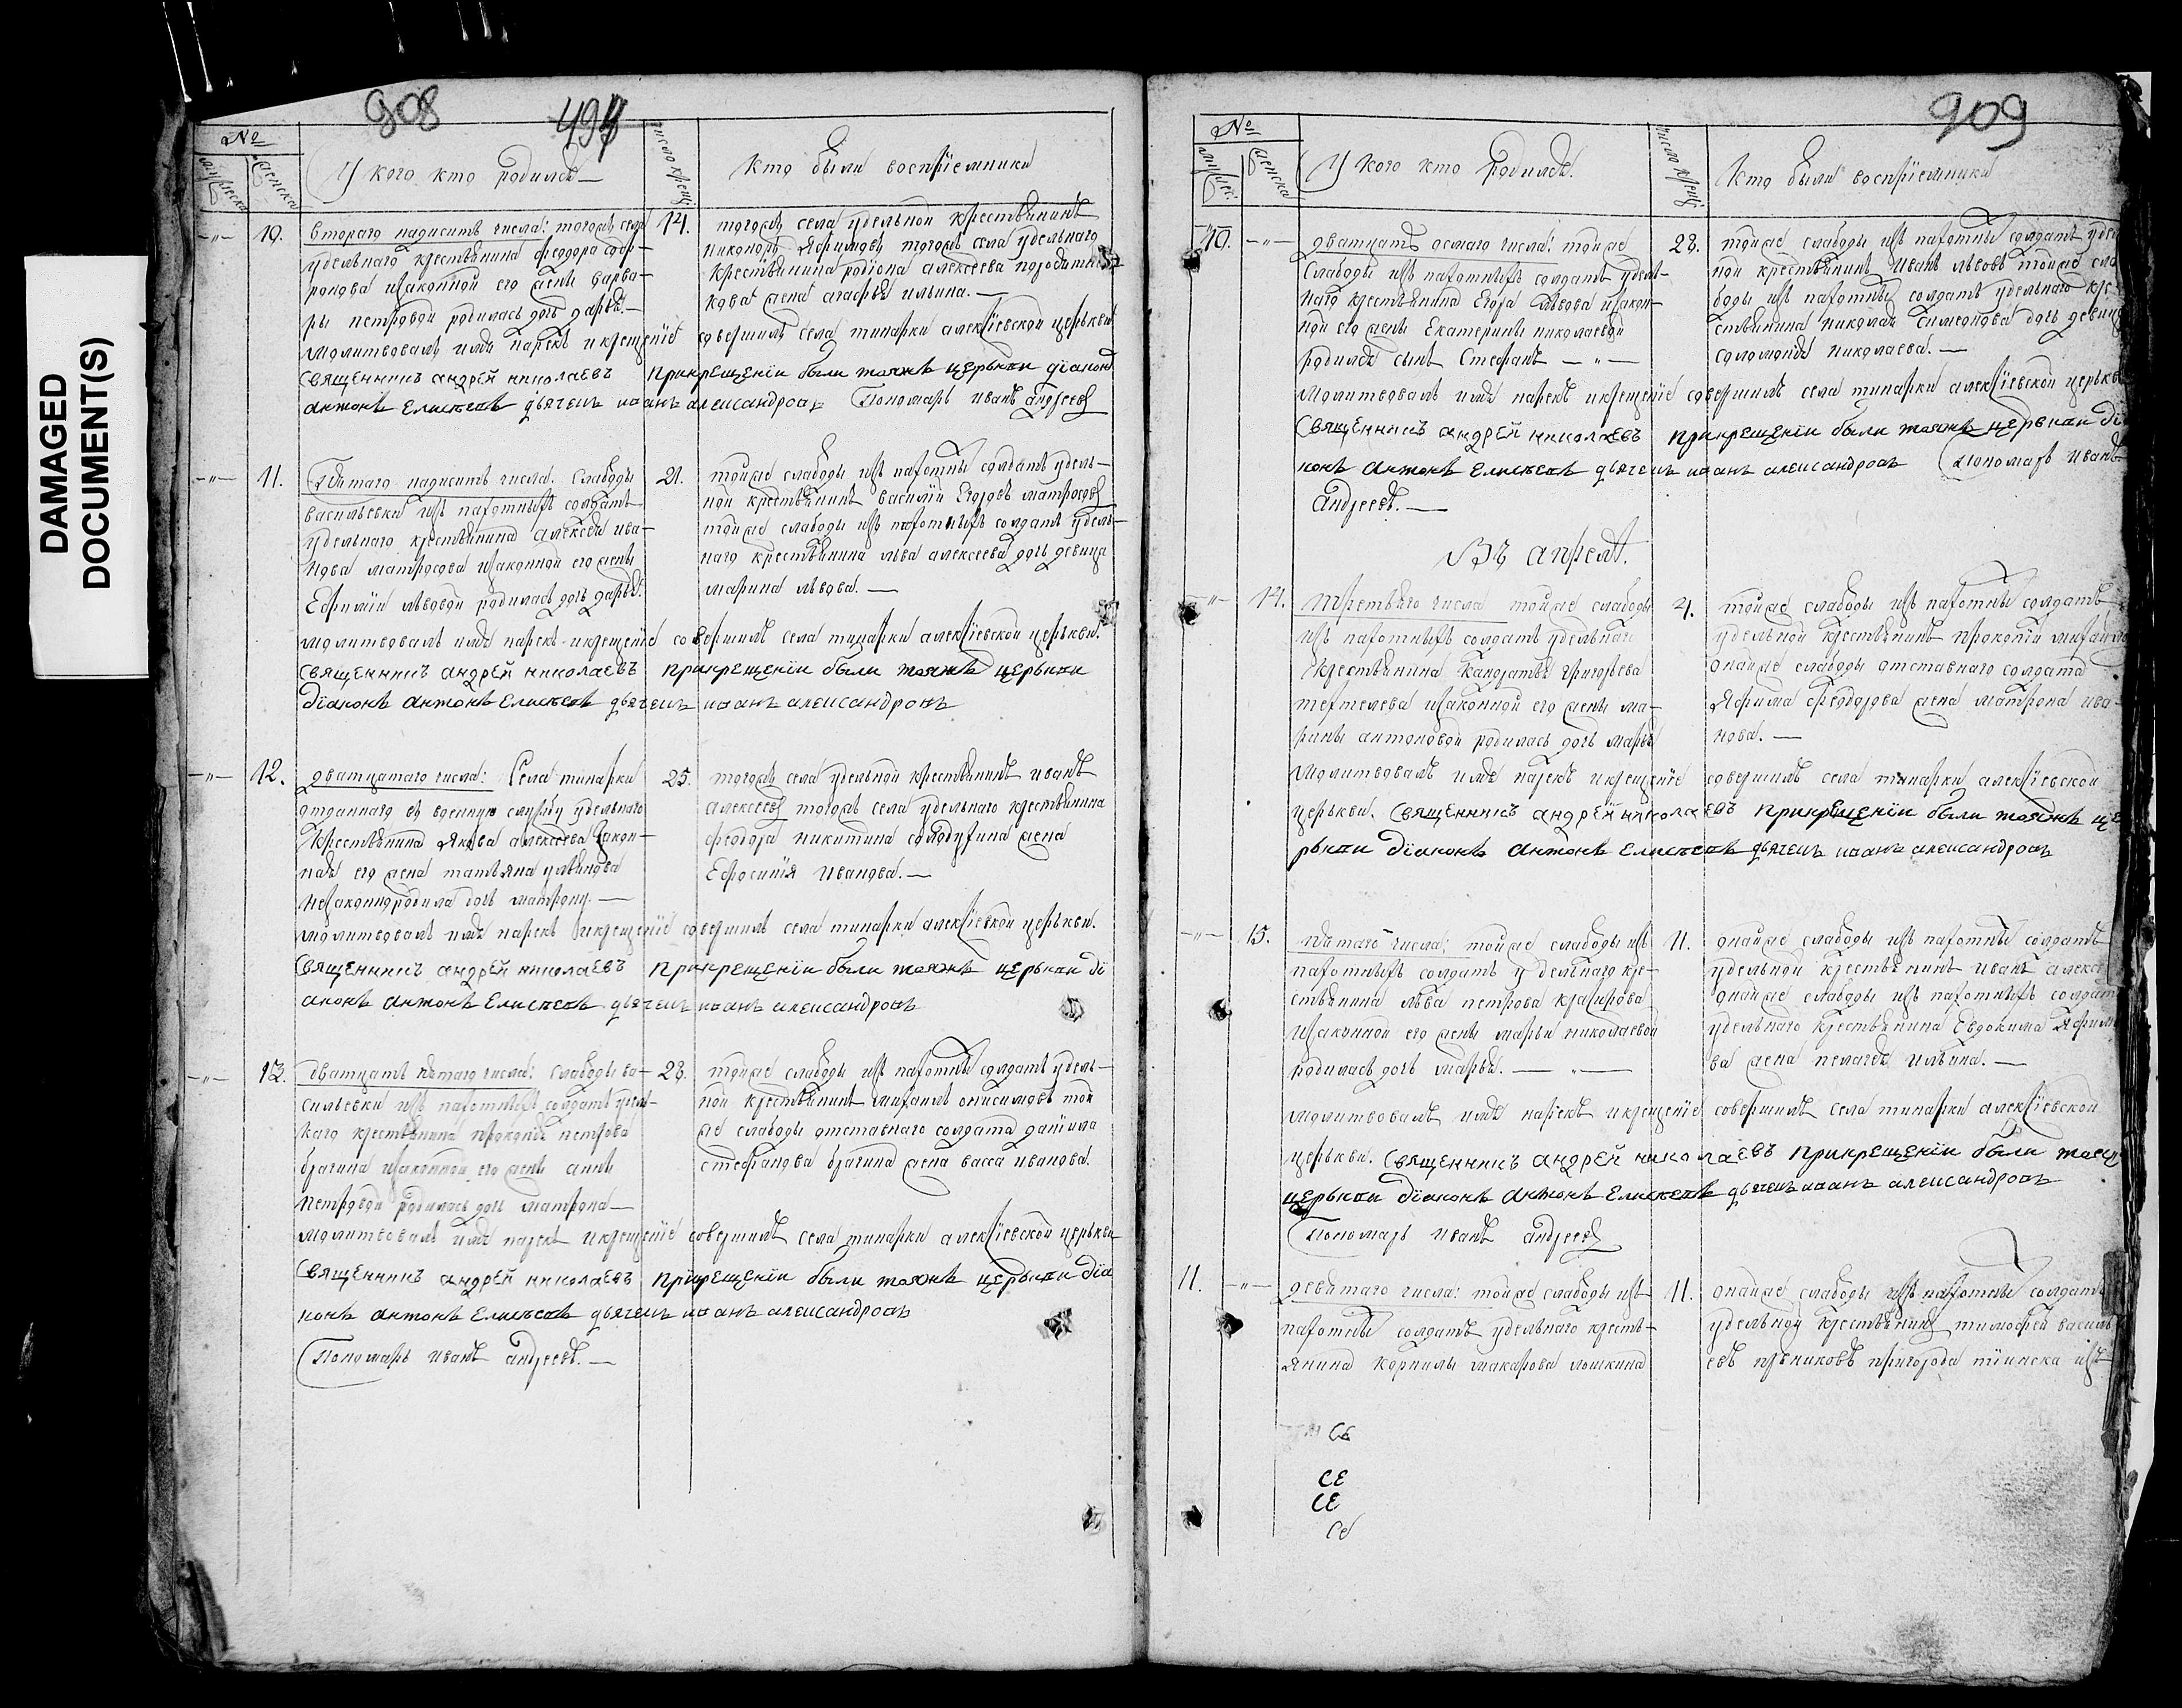 DAMAGED
DOCUMENT(S)
908
№
женска
У кого кто родился
число крещ:
Кто были воспрїемники
10.
втораго надесять числа: тогожъ села
удельнаго крестьянина феодора
законной его жены варва-
ры петровой родилась дочь дарья. —
14.
тогожъ села удельной крестьянинъ
тогожъ села удельнаго
крестьянина родїона алексеева
жена агафья ильина. —
молитвовалъ имя нарекъ и крещенїе совершилъ села тинарки алексїевской церькви
священникъ андрей николаевъ при крещенїи были тояжъ церькви дїаконъ
антонъ Елисеевъ дьячекъ иванъ александровъ Пономарь иванъ андреевъ
11.
надесять числа. Слабоды
васильевки изъ пахотныхъ солдатъ
удельнаго крестьянина алексея ива-
нова матросова законной его жены
Ефимїи львовой родилась дочь дарья.
21.
тойже слабоды изъ пахотны солдатъ удель-
ной крестьянинъ василїй Егоровъ матросовъ
тойже слабоды изъ пахотныхъ солдатъ удель-
наго крестьянина льва алексеева дочь девица
марина львова. —
молитвовалъ имя нарекъ и крещенїе совершилъ села тинарки алексїевской церькви.
священникъ андрей николаевъ при крещенїи были тояжъ церькви
дїаконъ антонъ Елисеевъ дьячекъ иванъ александровъ
12.
дватцатаго числа: Села тинарки
отданнаго въ военную службу удельнаго
крестьянина Якова алексеева закон-
ная его жена татьяна
незаконно родила дочь матрону. —
25.
тогожъ села удельной крестьянинъ иванъ
алексеевъ тогожъ села удельнаго крестьянина
феодора никитина жена
Ефросинїя Иванова. —
молитвовалъ имя нарекъ и крещенїе совершилъ села тинарки алексїевской церькви.
священникъ андрей николаевъ при крещенїи были тояжъ церькви дї
аконъ антонъ Елисеевъ дьячекъ иванъ александровъ
13.
дватцать пятаго числа: слабоды ва-
сильевки изъ пахотныхъ солдатъ удель-
наго крестьянина прокопїя петрова
брагина законной его жены анны
петровой родилась дочь матрона —
28.
тойже слабоды изъ пахотны солдатъ удель-
ной крестьянинъ михаилъ онисимовъ той
же слабоды отставнаго солдата данїила
стефанова брагина жена васса иванова.
молитвовалъ имя нарекъ и крещенїе совершилъ села тинарки алексїевской церькви
священникъ андрей николаевъ при крещенїи были тояжъ церькви дїа
конъ антонъ Елисеевъ дьячекъ иванъ александровъ
Пономарь иванъ андреевъ. —
909
№
женска
У кого кто родился.
число крещ:
Кто были воспрїемники
10.
дватцать осмаго числа: тойже
слабоды изъ пахотныхъ солдатъ удель-
наго крестьянина Егора львова закон-
ной его жены Екатерины николаевой
родился сынъ Стефанъ — „ —
28.
тойже слабоды изъ пахотны солдатъ удел
ной крестьянинъ Иванъ львовъ тойже сла
боды изъ пахотны солдатъ удельнаго кре-
стьянина николая симеонова дочь девица
соломонїя николаева. —
молитвовалъ имя нарекъ и крещенїе совершилъ села тинарки алексїевской церькви
священникъ андрей николаевъ при крещенїи были тояжъ церькви дїа
конъ антонъ Елисеевъ дьячекъ иванъ александровъ Пономарь иванъ
андреевъ. —
Въ апреле.
14.
третьяго числа тойже слабоды
изъ пахотныхъ солдатъ удельнаго
крестьянина кандратья григорьева
законной его жены ма-
рины антоновой родилась дочь марья
4.
тойже слабоды изъ пахотны солдатъ
удельной крестьянинъ прокопїй
онайже слабоды отставнаго солдата
Яфима феодорова жена матрона ива-
нова. —
молитвовалъ имя нарекъ и крещенїе совершилъ села тинарки алексїевской
церькви. священникъ андрей николаевъ при крещенїи были тояжъ це
рькви дїаконъ антонъ Елисеевъ дьячекъ иванъ александровъ
15.
пятаго числа: тойже слабоды изъ
пахотныхъ солдатъ удельнаго кре-
стьянина льва петрова
законной его жены марьи николаевой
родилась дочь марья. — „ —
11.
онайже слабоды изъ пахотны солдатъ
удельной крестьянинъ иванъ алексе
онайже слабоды изъ пахотныхъ солдат
удельнаго крестьянина Евдокима Яфимо
ва жена пелагея ильина. —
молитвовалъ имя нарекъ и крещенїе совершилъ села тинарки алексїевской
церькви. священникъ андрей николаевъ при крещенїи были тояжъ
церькви дїаконъ антонъ Елисеевъ дьячекъ иванъ александровъ
Пономарь иванъ андреевъ
11.
девятаго числа: тойже слабоды изъ
пахотны солдатъ удельнаго кресть-
янина корнилы макарова лошкина
11.
онайже слабоды изъ пахотны солдатъ
удельной крестьянинъ тимофей василь
евъ пригорода тїинска изъ
Се
СЕ
СЕ
Се